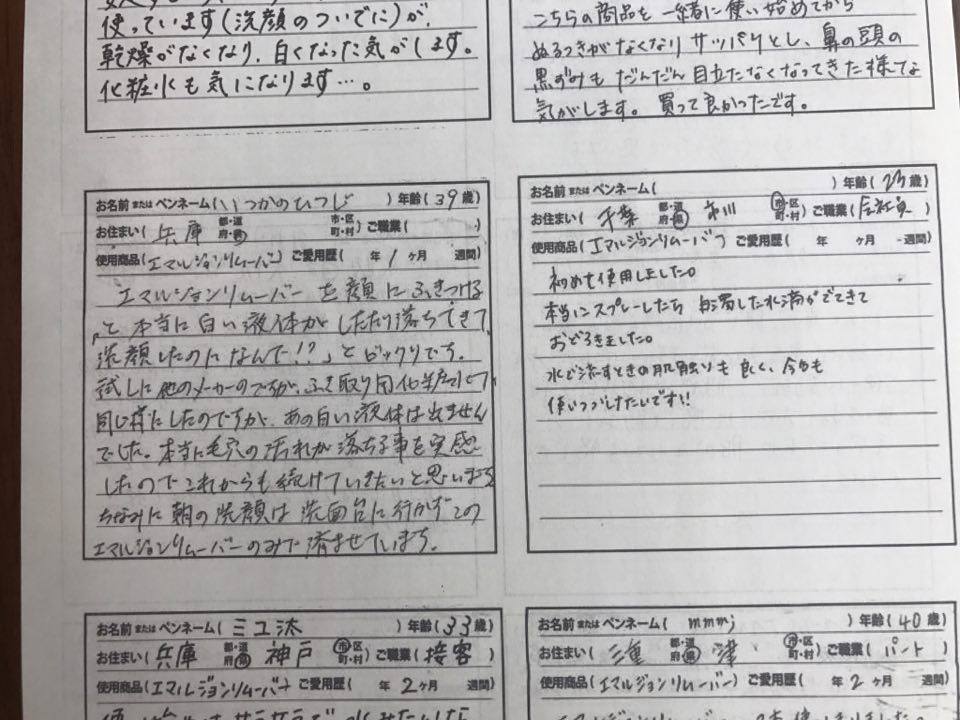 使っています(洗顔のついでに)が、
乾燥がなくなり、白くなった気がします。
化粧水も気になります…。
こちらの商品を一緒に使い始めてから
ぬるつきがなくなりサッパリとし、鼻の頭の
黒ずみもだんだん目立たなくなってきた様な
気がします。買って良かったです。
お名前またはペンネーム(いつかのひつじ)年齢(39歳)
お住まい(兵庫 都・道府・県 市・区町・村)ご職業( )
使用商品(エマルジョンリムーバー)ご愛用歴( 年1ヶ月 週間)
エマルジョンリムーバーを顔にふきつける
と本当に白い液体がしたたり落ちてきて
洗顔したのになんで!?」とビックリです。
試しに他のメーカーのですが、ふき取り用化粧水で
同じ様にしたのですが、あの白い液体は出ません
でした。本当に毛穴の汚れが落ちる事を実感
したのでこれからも続けていきたいと思います
ちなみに朝の洗顔は洗面台に行かずこの
エマルジョンリムーバーのみで済ませています。
お名前またはペンネーム( )年齢(23歳)
お住まい(千葉 都・道府・県 市川 市・区町・村)ご職業(会社員)
使用商品(エマルジョンリムーバー)ご愛用歴( 年 ヶ月 週間)
初めて使用しました。
本当にスプレーしたら白濁した水滴がでてきて
おどろきました。
水で流すときの肌触りも良く、今後も
使いつづけたいです!!
お名前またはペンネーム(ミユ汰)年齢(33歳)
お住まい(兵庫 都・道府・県 神戸 市・区町・村)ご職業(接客)
使用商品(エマルジョンリムーバー)ご愛用歴( 年2ヶ月 週間)
お名前またはペンネーム(mmmj)年齢(40歳)
お住まい(三重 都・道府・県 津 市・区町・村)ご職業(パート)
使用商品(エマルジョンリムーバー)ご愛用歴( 年2ヶ月 週間)